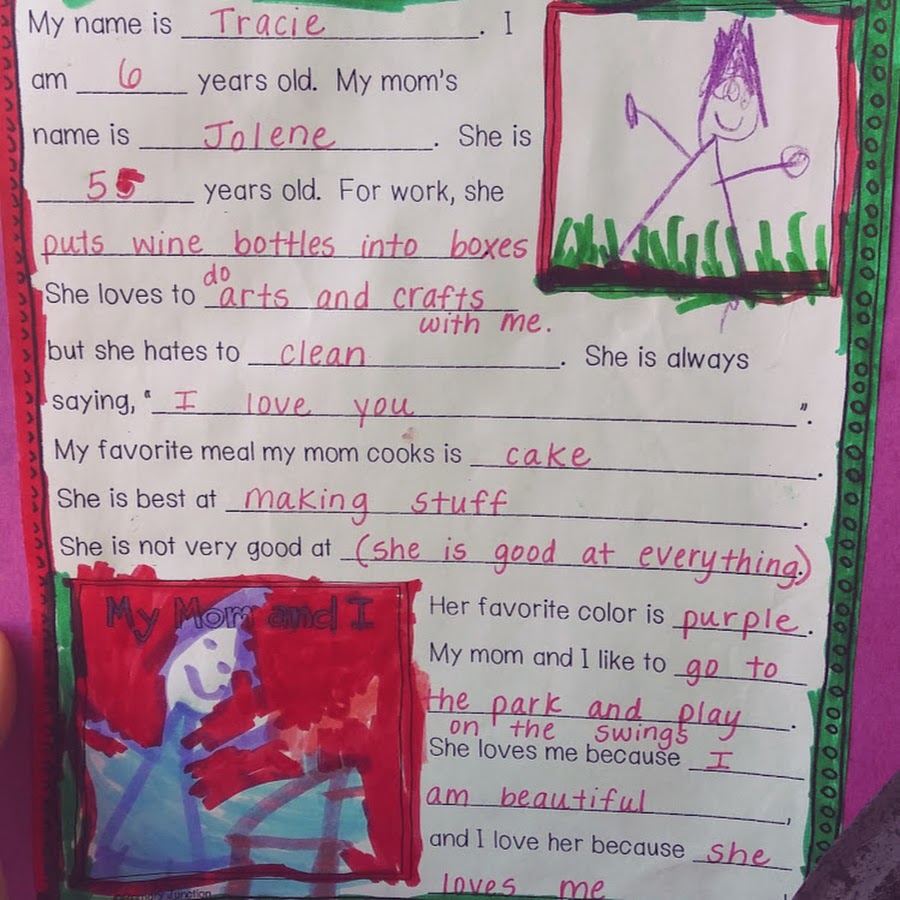 My name is Tracie. I
am 6 years old. My mom's
name is Jolene. She is
55 years old. For work, she
puts wine bottles into boxes
She loves to do arts and crafts
with me.
but she hates to clean. She is always
saying, "I love you".
My favorite meal my mom cooks is cake.
She is best at making stuff.
She is not very good at (she is good at everything.)
My Mom and I
Her favorite color is purple.
My mom and I like to go to
the park and play.
on the swings
She loves me because I
am beautiful,
and I love her because she
loves me
Junction